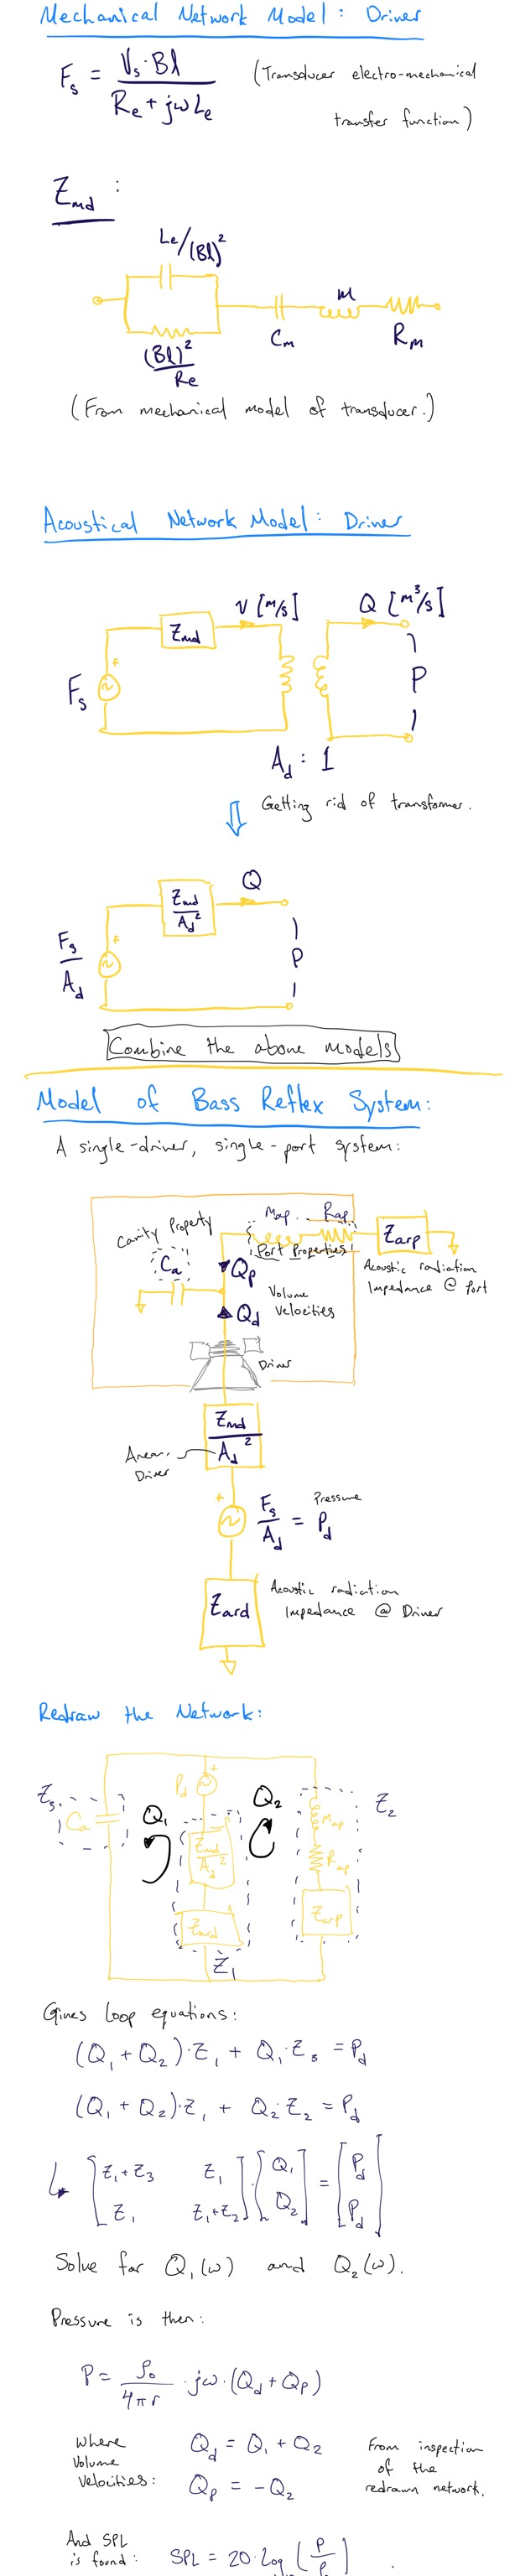 Mechanical Network Model: Driver
F_s = V_s·Bl / (R_e + jωL_e)
(Transducer electro-mechanical
transfer function)
Z_md :
Le/(Bl)²
(Bl)²/Re
C_m
M
R_m
(From mechanical model of transducer.)
Acoustical Network Model: Driver
F_s
Z_md
v [m/s]
Q [m³/s]
P
A_d : 1
Getting rid of transformer.
F_s/A_d
Z_md/A_d²
Q
P
Combine the above models
Model of Bass Reflex System:
A single-driver, single-port system:
Cavity Property
C_a
Map
Rap
Port Properties
Z_arp
Acoustic radiation
Impedance @ Port
Q_p
Volume
Velocities
Q_d
Driver
Z_md/A_d²
Area,
Driver
F_s/A_d = P_d
Pressure
Z_ard
Acoustic radiation
Impedance @ Driver
Redraw the Network:
Z_3
C_a
Q_1
P_d
Z_md/A_d²
Z_ard
Z_1
Q_2
Map
Rap
Z_arp
Z_2
Gives loop equations:
(Q_1 + Q_2)·Z_1 + Q_1·Z_3 = P_d
(Q_1 + Q_2)·Z_1 + Q_2·Z_2 = P_d
↳ [Z_1+Z_3 Z_1; Z_1 Z_1+Z_2]·[Q_1; Q_2] = [P_d; P_d]
Solve for Q_1(ω) and Q_2(ω).
Pressure is then:
P = ρ_0/(4πr) · jω·(Q_d + Q_p)
Where
Volume
Velocities:
Q_d = Q_1 + Q_2
Q_p = -Q_2
From inspection
of the
redrawn network.
And SPL
is found:
SPL = 20·Log (P/